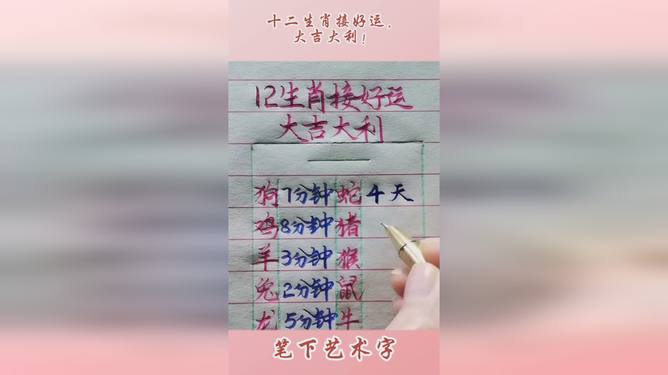 十二生肖接好运,
大吉大利!
12生肖接好运
大吉大利
狗7分钟蛇4天
鸡8分钟猪
羊3分钟猴
兔2分钟鼠
龙5分钟牛
笔下艺术字